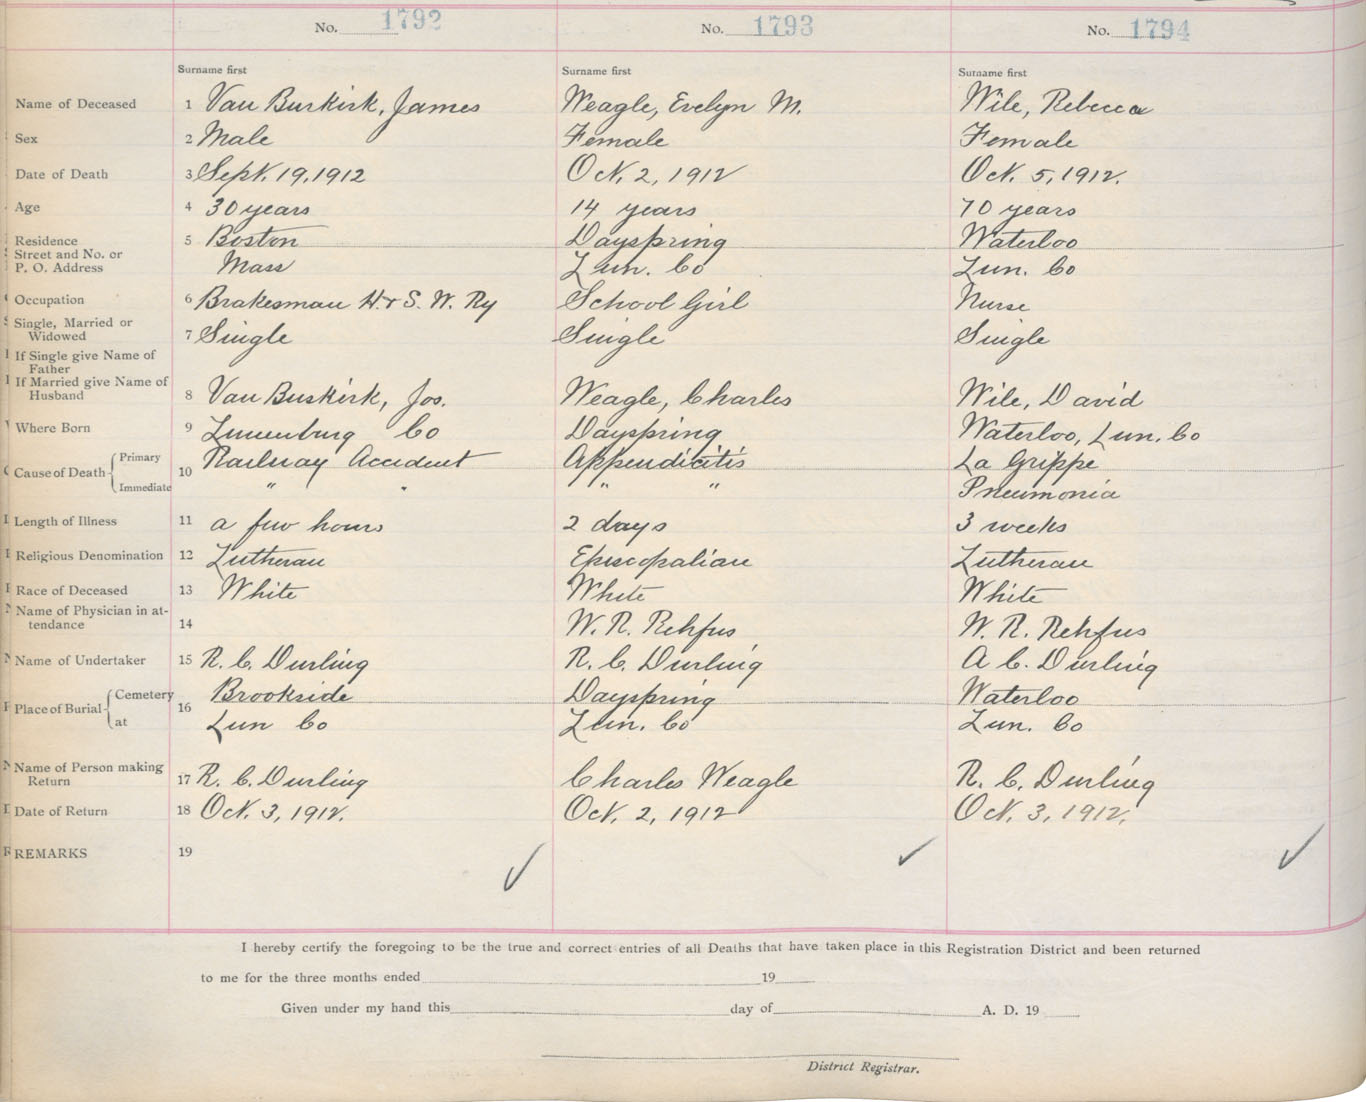 No. 1792 No. 1793 No. 1794
Surname first Surname first Surname first
Name of Deceased 1 Van Burkirk, James Weagle, Evelyn M. Wile, Rebecca
Sex 2 Male Female Female
Date of Death 3 Sept. 19, 1912 Oct. 2, 1912 Oct. 5, 1912.
Age 4 30 years 14 years 70 years
Residence 5 Boston Dayspring Waterloo
Street and No. or
P. O. Address Mass Lun. Co Lun. Co
Occupation 6 Brakesman H. & S. W. Ry School Girl Nurse
Single, Married or
Widowed 7 Single Single Single
If Single give Name of
Father
If Married give Name of
Husband 8 Van Buskirk, Jos. Weagle, Charles Wile, David
Where Born 9 Lunenburg Co Dayspring Waterloo, Lun. Co
Cause of Death Primary 10 Railway Accident Appendicitis La Grippe
Immediate " " " " Pneumonia
Length of Illness 11 a few hours 2 days 3 weeks
Religious Denomination 12 Lutheran Episcopalian Lutheran
Race of Deceased 13 White White White
Name of Physician in at-
tendance 14 W. R. Rehfus W. R. Rehfus
Name of Undertaker 15 R. C. Durling R. C. Durling A C. Durling
Place of Burial Cemetery 16 Brookside Dayspring Waterloo
at Lun Co Lun. Co Lun. Co
Name of Person making
Return 17 R. C. Durling Charles Weagle R. C. Durling
Date of Return 18 Oct. 3, 1912. Oct. 2, 1912 Oct. 3, 1912.
REMARKS 19
I hereby certify the foregoing to be the true and correct entries of all Deaths that have taken place in this Registration District and been returned
to me for the three months ended 19
Given under my hand this day of A. D. 19
District Registrar.